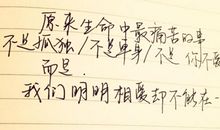 原来生命中最痛苦的事
不是孤独/不是单身/不是你不爱
而是
我们明明相爱却不能在一